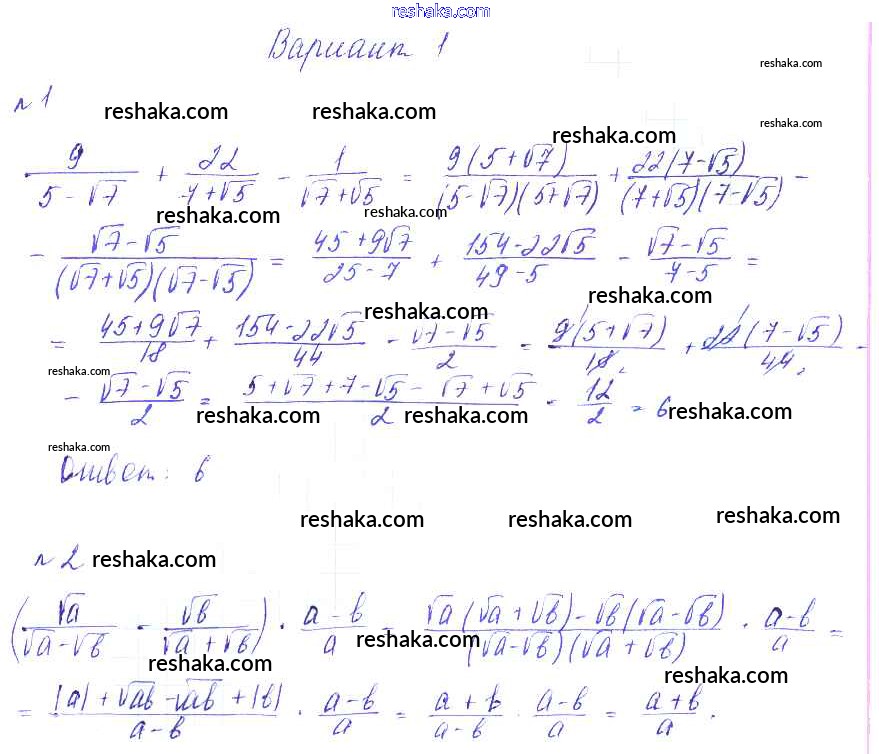 reshaka.com
Вариант 1
reshaka.com
№1
reshaka.com reshaka.com
reshaka.com reshaka.com
9/(5-√7) + 22/(7+√5) - 1/(√7+√5) = 9(5+√7)/((5-√7)(5+√7)) + 22(7-√5)/((7+√5)(7-√5)) -
reshaka.com reshaka.com
- (√7-√5)/((√7+√5)(√7-√5)) = (45+9√7)/(25-7) + (154-22√5)/(49-5) - (√7-√5)/(7-5) =
reshaka.com reshaka.com
= (45+9√7)/18 + (154-22√5)/44 - (√7-√5)/2 = 9(5+√7)/18 + 22(7-√5)/44 -
reshaka.com
- (√7-√5)/2 = (5+√7+7-√5-√7+√5)/2 = 12/2 = 6
reshaka.com reshaka.com reshaka.com
reshaka.com
Ответ: 6
reshaka.com reshaka.com reshaka.com
№2 reshaka.com
(√a/(√a-√b) - √b/(√a+√b)) · (a-b)/a = (√a(√a+√b)-√b(√a-√b))/((√a-√b)(√a+√b)) · (a-b)/a =
reshaka.com reshaka.com reshaka.com
= (|a|+√ab-√ab+|b|)/(a-b) · (a-b)/a = (a+b)/(a-b) · (a-b)/a = (a+b)/a.